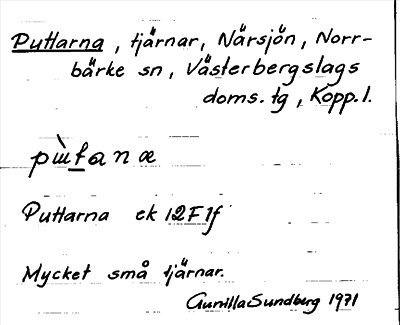 Puttarna, tjärnar, Närsjön, Norr-
bärke sn, Västerbergslags
doms. tg, Kopp. l.
Puttarna ek 12F1f
Mycket små tjärnar.
Gunilla Sundberg 1971